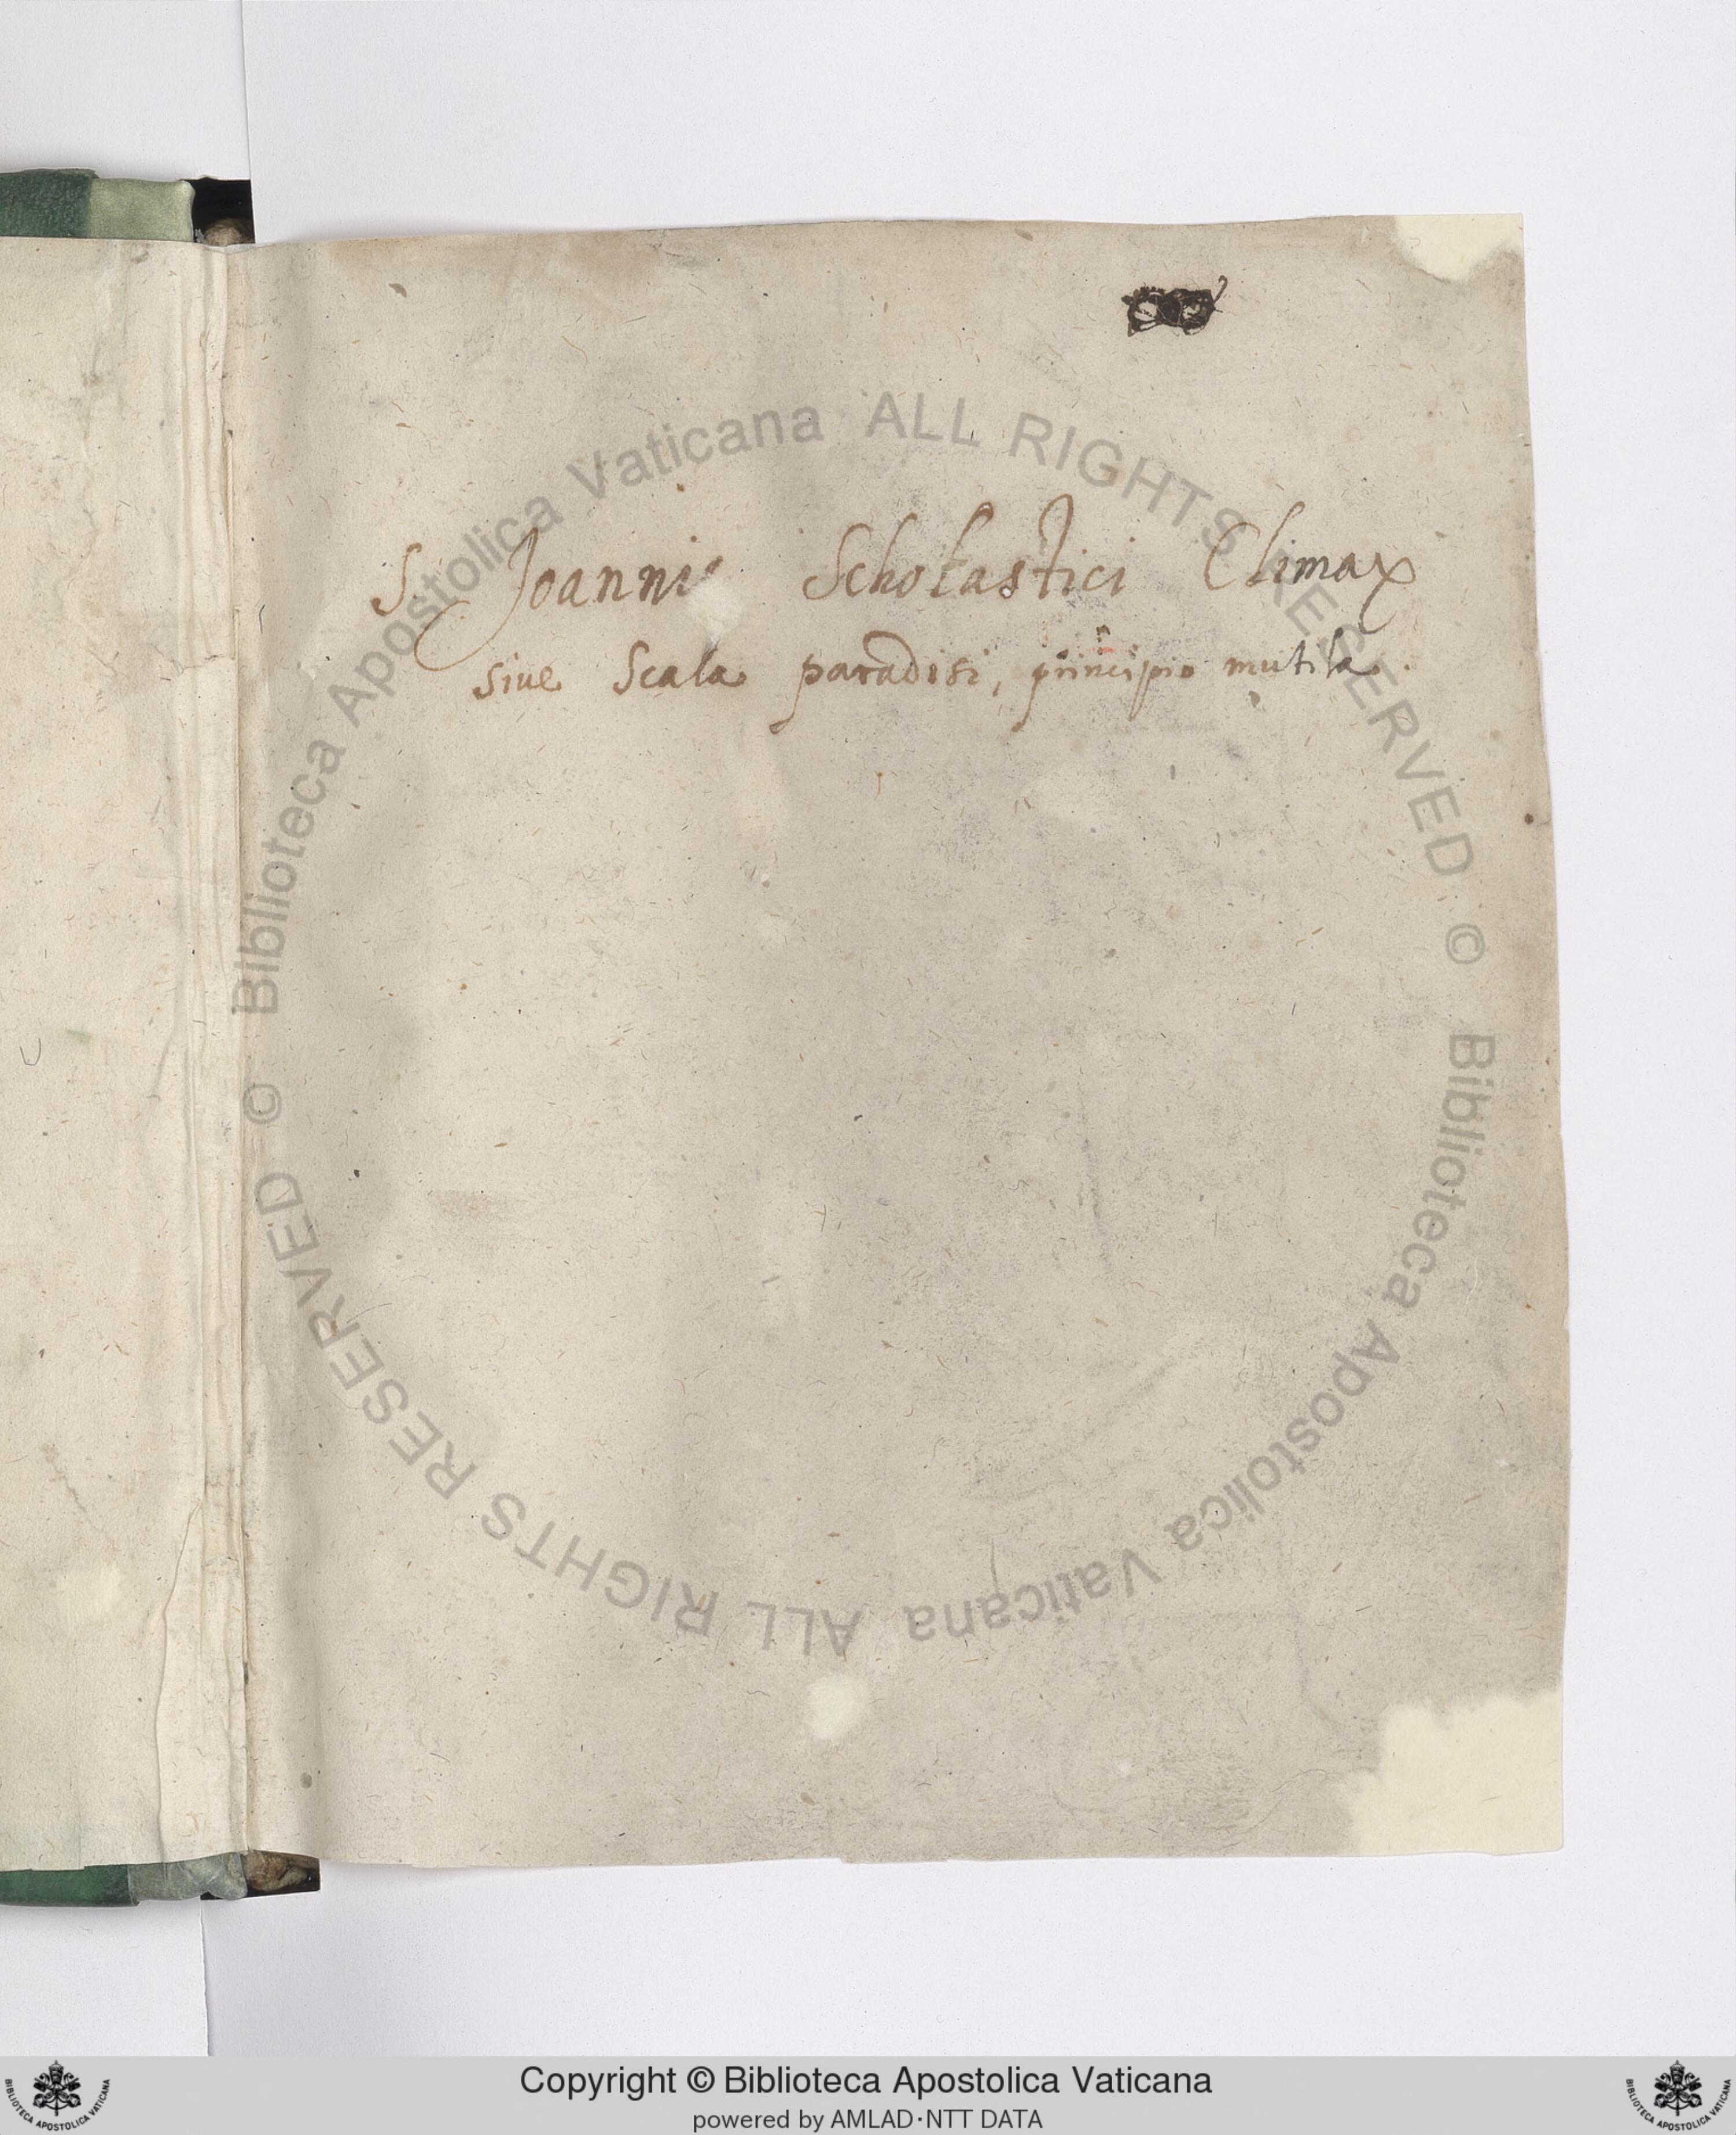 S. Joannis Scholastici Climax
sive Scala paradisi, principio mutila.
© Biblioteca Apostolica Vaticana ALL RIGHTS RESERVED © Biblioteca Apostolica Vaticana ALL RIGHTS RESERVED
Copyright © Biblioteca Apostolica Vaticana
powered by AMLAD·NTT DATA
BIBLIOTECA APOSTOLICA VATICANA
BIBLIOTECA APOSTOLICA VATICANA